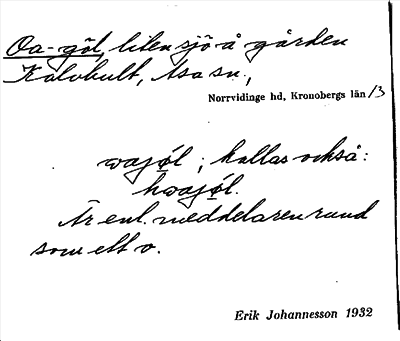 Oa-göl, liten sjö å gården
Kalvhult, Asa sn.,
Norrvidinge hd, Kronobergs län /3
oajøl ; kallas också:
hoajøl.
Är enl. meddelaren rund
som ett o.
Erik Johannesson 1932